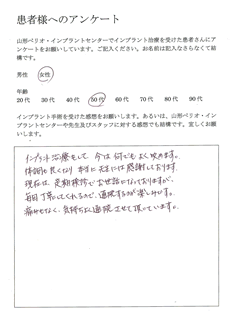 患者様へのアンケート
山形ペリオ・インプラントセンターでインプラント治療を受けた患者さんにア
ンケートをお願いしています。ご記入ください。お名前は記入なさらなくて結
構です。
男性 女性
年齢
20代 30代 40代 50代 60代 70代 80代 90代
インプラント手術を受けた感想をお願いします。あるいは、山形ペリオ・イン
プラントセンターや先生及びスタッフに対する感想でも結構です。宜しくお願
いします。
インプラント治療をして、今は何でもよく咬めます。
体調も良くなり 本当に先生には感謝しております。
現在は、定期検診でお世話になっておりますが、
毎回丁寧にしてくれるので、通院するのが楽しみです。
痛みもなく、気持ちよく通院させて頂いています。